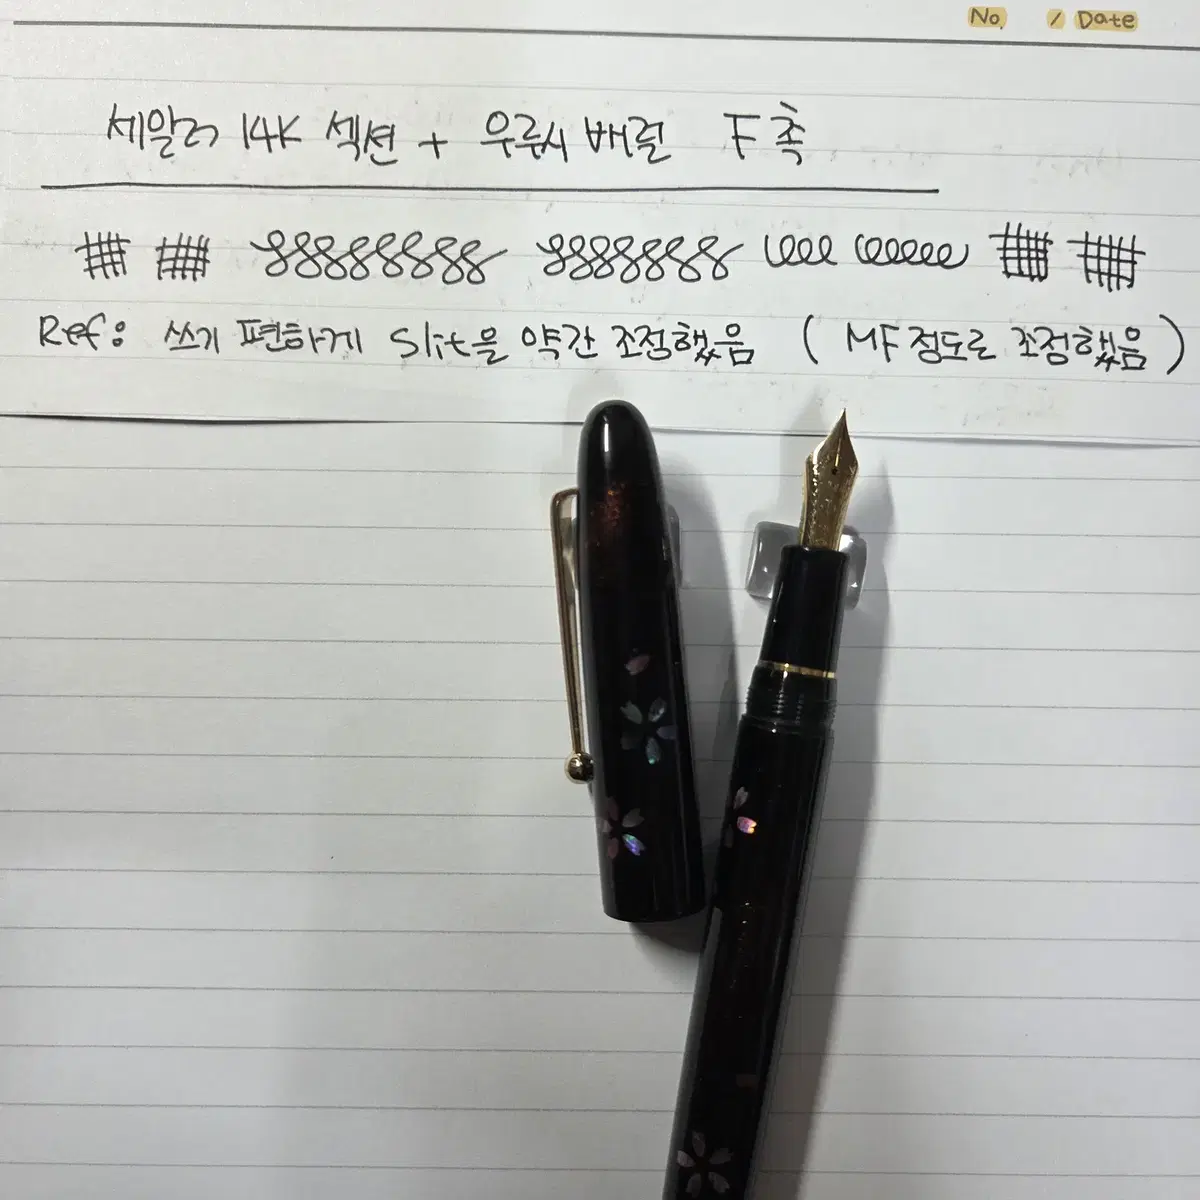 No. / Date
세일러 14K 섹션 + 우루시 배럴 F촉
Ref: 쓰기 편하게 Slit을 약간 조정했음 (MF정도로 조정했음)